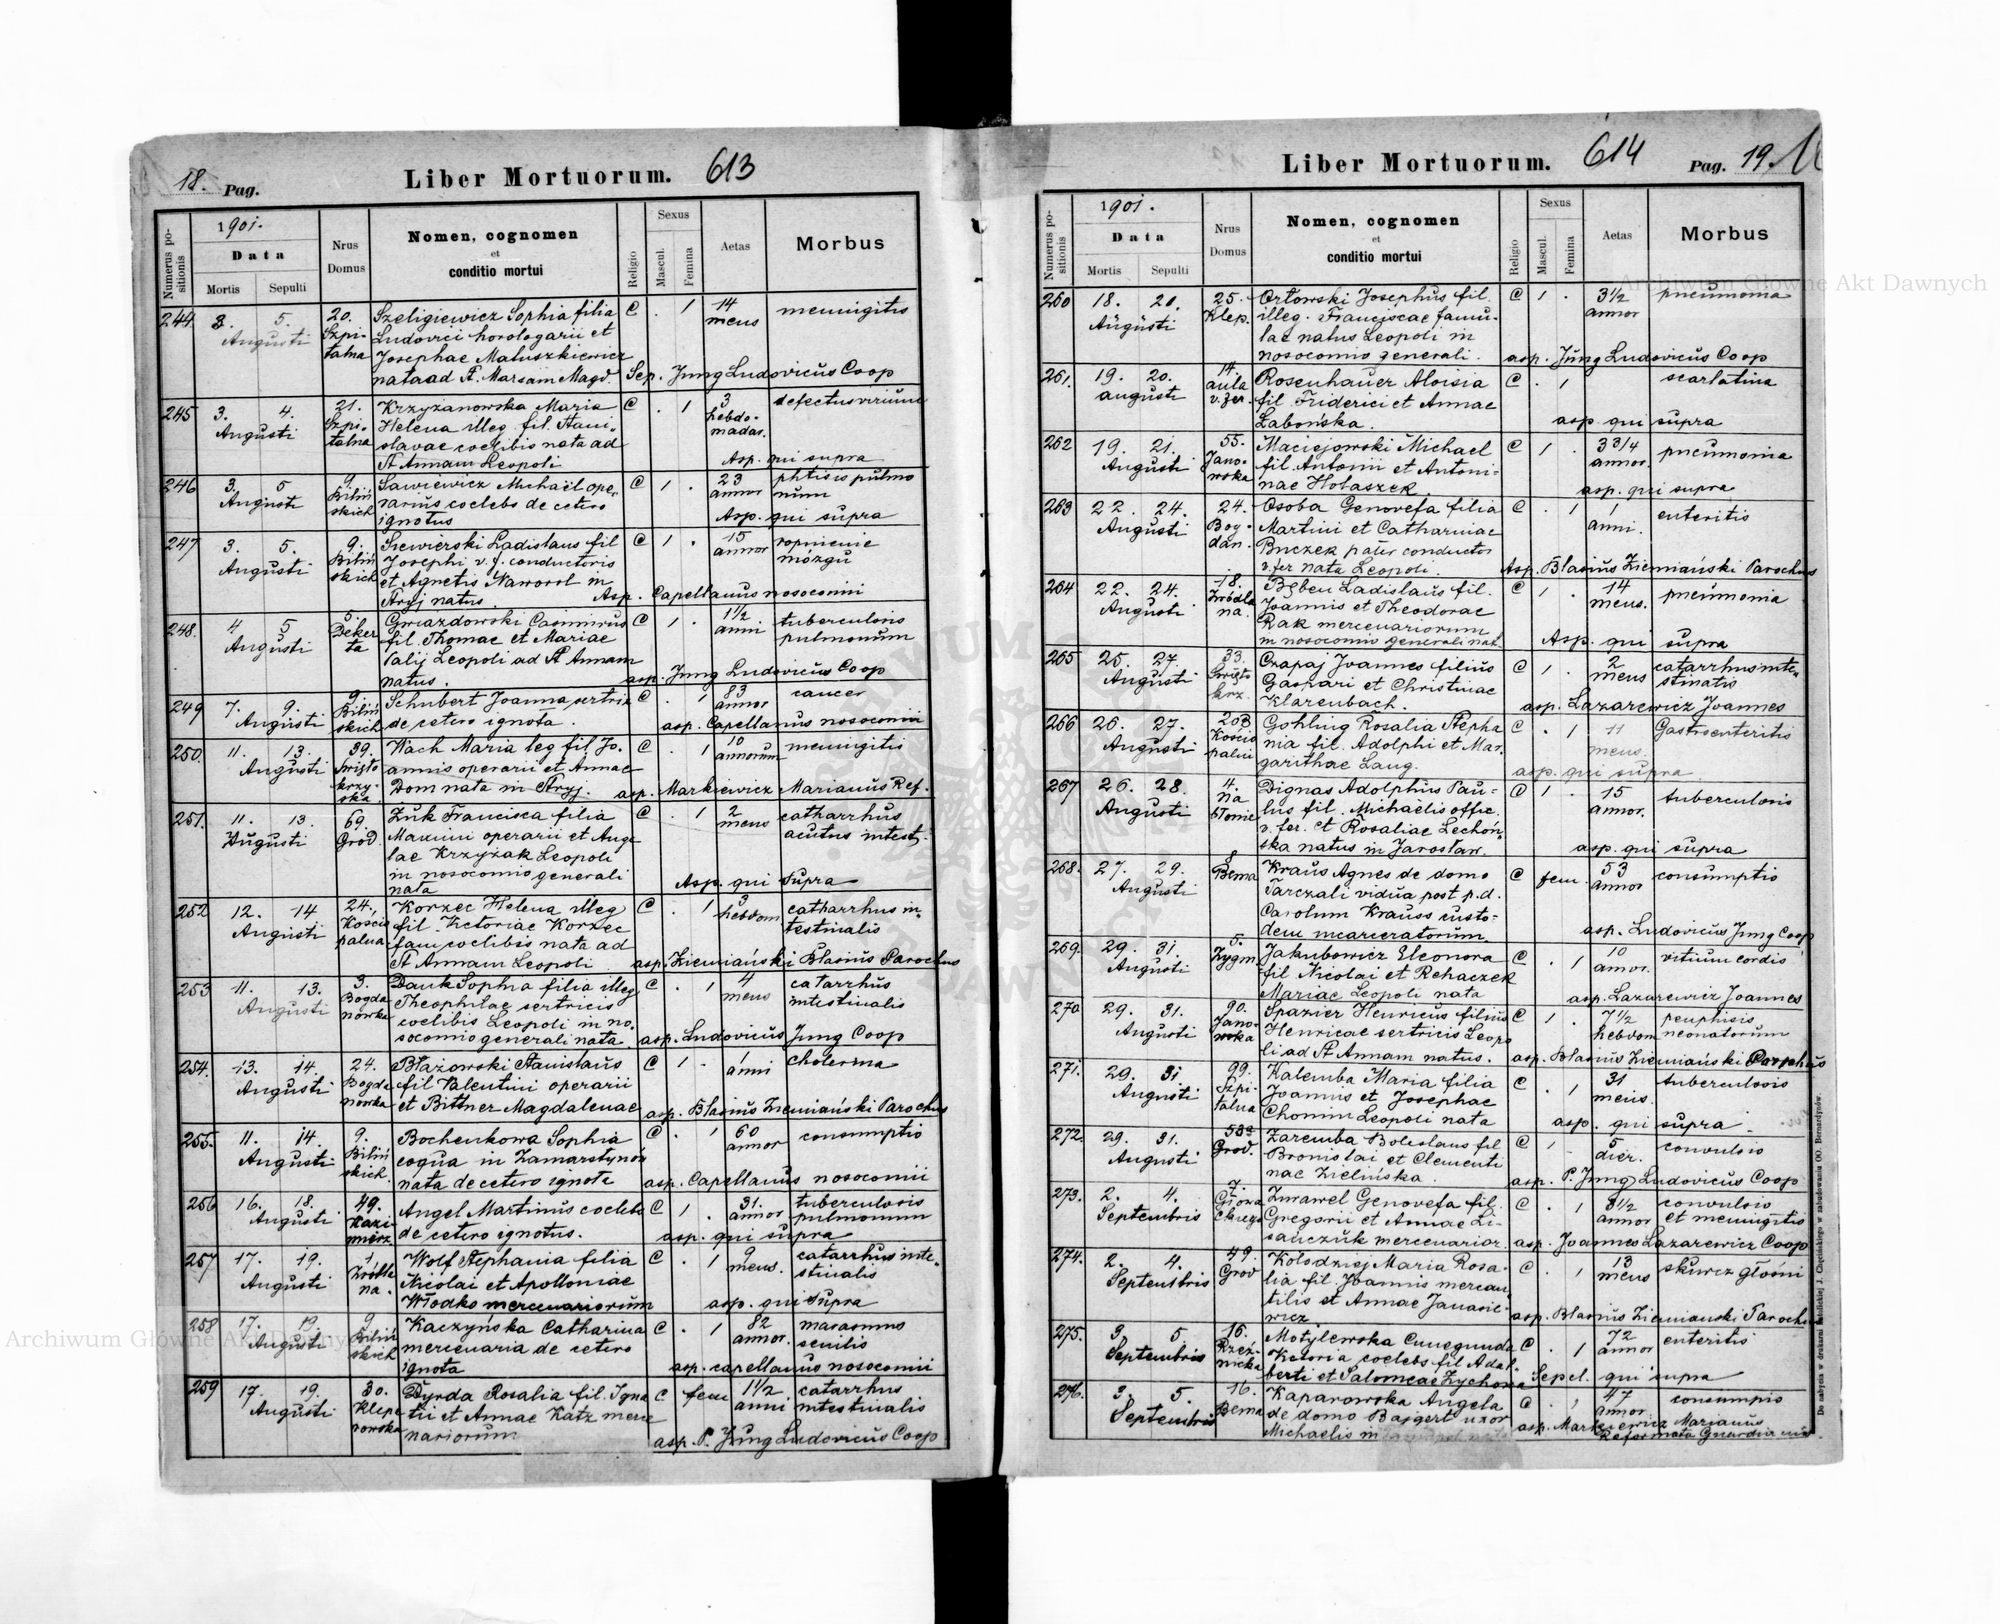 18. Pag.
Liber Mortuorum. 613
Numerus positionis
1901.
Data
Mortis Sepulti
Nrus Domus
Nomen, cognomen
et
conditio mortui
Religio
Sexus
Mascul. Femina
Aetas
Morbus
244. 3. 5. 20. Szeligiewicz Sophia filia C . 1 14 meningitis
Augusti Szpi- Ludovici horologarii et mens
talna Josephae Matuszkiewicz
nata ad St. Mariam Magd. Sep. Jung Ludovicus Coop
245 3. 4. 21. Krzyżanowska Maria C . 1 3 defectus virium
Augusti Szpi- Helena illeg. fil. Stani- hebdo-
talna slavae coelibis nata ad madar.
St Annam Leopoli Asp. qui supra
246 3. 5 9. Sawiewicz Michaël ope- C 1 . 23 phtisis pulmo
Augusti Biliń rarius coelebs de cetero annor num
skich ignotus Asp. qui supra
247 3. 5. 9. Siewierski Ladislaus fil C 1 . 15 ropnienie
Augusti Biliń Josephi v. f. conductoris annor mózgu
skich et Agnetis Naworol in
Stryj natus. Asp. Capellanus nosocomii
248. 4 5 5. Gwiazdowski Casimirus C 1 . 1½ tuberculosis
Augusti Deker fil. Thomae et Mariae anni pulmonum
ta Palij Leopoli ad St Annam
natus. asp. Jung Ludovicus Coop
249 7. 9. 9. Schubert Joanna sertrix C . 1 83 cancer
Augusti Biliń de cetero ignota. annor
skich asp. Capellanus nosocomii
250. 11. 13. 39. Wach Maria leg fil. Jo- C . 1 10 meningitis
Augusti Święto annis operarii et Annae annorum
krzy- Dom nata in Stryj. asp. Markiewicz Marianus Ref.
ska
251. 11. 13. 69. Żuk Francisca filia C . 1 2 catharrhus
Augusti Grod. Maximi operarii et Ange mens acutus intest.
lae Krzyżak Leopoli
in nosocomio generali
nata Asp. qui supra
252 12. 14 24. Korzec Helena illeg C . 1 3 catharrhus in-
Augusti Kościo fil. Victoriae Korzec hebdom testinalis
palna fam coelibis nata ad
St Annam Leopoli asp. Ziemiański Blasius Parochus
253 11. 13. 3. Dauk Sophia filia illeg C . 1 4 catarrhus
Augusti Bogda Theophilae sertricis mens intestinalis
nowka coelibis Leopoli in no-
socomio generali nata. asp. Ludovicus Jung Coop
254. 13. 14. 24. Błażowski Stanislaus C 1 . 1 cholerina
Augusti Bogda fil Valentini operarii anni
nowka et Bittner Magdalenae asp. Blasius Ziemiański Parochus
255. 11. 14. 9. Bochenkowa Sophia C . 1 60 consumptio
Augusti Biliń coqua in Zamarstynów annor
skich. nata de cetero ignota asp. Capellanus nosocomii
256 16. 18. 49. Angel Martinus coelebs C 1 . 31. tuberculosis
Augusti Kazi- de cetero ignotus. annor pulmonum
mierz asp. qui supra
257 17. 19. 1. Wolf Stephania filia C . 1 9 catarrhus inte-
Augusti Źródla Nicolai et Apolloniae mens. stinalis
na. Włodko mercenariorum asp. qui supra
258 17. 19. 9. Kaczyńska Catharina C . 1 82 marasmus
Augusti Biliń mercenaria de cetero annor. senilis
skich ignota asp. capellanus nosocomii
259 17. 19. 30. Dyrda Rosalia fil. Igna C. fem 1½ catarrhus
Augusti Klepa tii et Annae Katz merce anni intestinalis
rowska nariorum asp. P. Jung Ludovicus Coop
Liber Mortuorum. 614
Pag. 19.
Numerus positionis
1901.
Data
Mortis Sepulti
Nrus Domus
Nomen, cognomen
et
conditio mortui
Religio
Sexus
Mascul. Femina
Aetas
Morbus
260 18. 20. 25. Orłowski Josephus fil. C 1 . 3½ pneumonia
Augusti Klep. illeg. Franciscae famu- annor
lae natus Leopoli in
nosocomio generali. asp. Jung Ludovicus Coop
261. 19. 20. 14. Rosenhauer Aloisia C . 1 scarlatina
augusti aula fil. Friderici et Annae
v. fer. Łabońska. asp. qui supra
262 19. 21. 55. Maciejowski Michael C 1 . 3 3/4 pneumonia
Augusti Jano- fil. Antonii et Antoni- annor.
wska nae Hołaszek. asp. qui supra
263 22. 24. 24. Osoba Genovefa filia C . 1 1 enteritis
Augusti Bog- Martini et Catharinae anni.
dan. Buczek pater conductor
v. fer nata Leopoli. Asp. Blasius Ziemiański Parochus
264 22. 24. 18. Bęben Ladislaus fil. C 1 . 14 pneumonia
Augusti Źródla Joannis et Theodorae mens.
na. Rak mercenariorum
in nosocomio generali nat. Asp. qui supra
265 25. 27. 33. Czapaj Joannes filius C 1 . 2 catarrhus inte-
Augusti Święto Gaspari et Christinae mens stinalis
krz. Klarenbach. asp. Lazarewicz Joannes
266 26. 27. 20B Gohling Rosalia Stepha C . 1 11 Gastroenteritis
Augusti Kościo nia fil. Adolphi et Mar- mens.
palni garithae Laug. asp. qui supra
267 26. 28. 4. Dignas Adolphus Pau- C 1 . 15 tuberculosis
Augusti na lus fil. Michaëlis offic. annor.
Błonie v. fer. et Rosaliae Lechoń-
ska natus in Jarosław. asp. qui supra
268. 27. 29. 8 Kraus Agnes de domo C fem. 53 consumptio
Augusti Bema Tarczali vidua post p.d. annor
Carolum Krauss custo-
dem incarceratorum. asp. Ludovicus Jung Coop
269. 29. 31. 5. Jakubowicz Eleonora C . 1 10 vitium cordis
Augusti Zygm. fil Nicolai et Rehaczek annor.
Mariae Leopoli nata asp. Lazarewicz Joannes
270 29. 31. 90. Spazier Henricus filius C 1 . 7½
Augusti Jano- Henricae sertricis Leopo hebdom neonatorum
wska li ad St Annam natus. asp. Blasius Ziemiański Parochus
271. 29. 31 99. Kalemba Maria filia C . 1 31 tuberculosis
Augusti Szpi- Joannis et Josephae mens.
talna Chomin Leopoli nata asp. qui supra
272. 29. 31. 53a Zaremba Boleslaus fil C 1 . 5 convulsio
Augusti Grod. Bronislai et Clementi dier.
nae Zielińska. asp. P. Jung Ludovicus Coop
273. 2. 4. 7. Żurawel Genovefa fil. C . 1 8½ convulsio
Septembris Gregorii et Annae Li- annor et meningitis
sańczuk mercenarior. asp. Joannes Lazarewicz Coop
274. 2. 4. 49. Kołodziej Maria Rosa- C . 1 13 skurcz głośni
Septembris Grod lia fil. Joannis mercan- mens
tilis et Annae Janasie-
wicz asp. Blasius Ziemianski Parochu
275. 3 5. 16. Motylewska Cunegunda C . 1 72 enteritis
Septembris Rzeź- Victoria coelebs fil Adal- annor
nicka berti et Salomeae Zychowa Sepel. qui supra
276. 3. 5. 16. Kaparowska Angela C . 1 47 consumpio
Septembris Bema de domo Bajgert uxor annor
Michaelis asp. Markiewicz Marianus
Reformata Guardia
Do nabycia w drukarni katolickiej J. Chęcińskiego w zabudowaniu OO. Bernardynów.
Archiwum Główne Akt Dawnych
Archiwum Główne Akt Dawnych